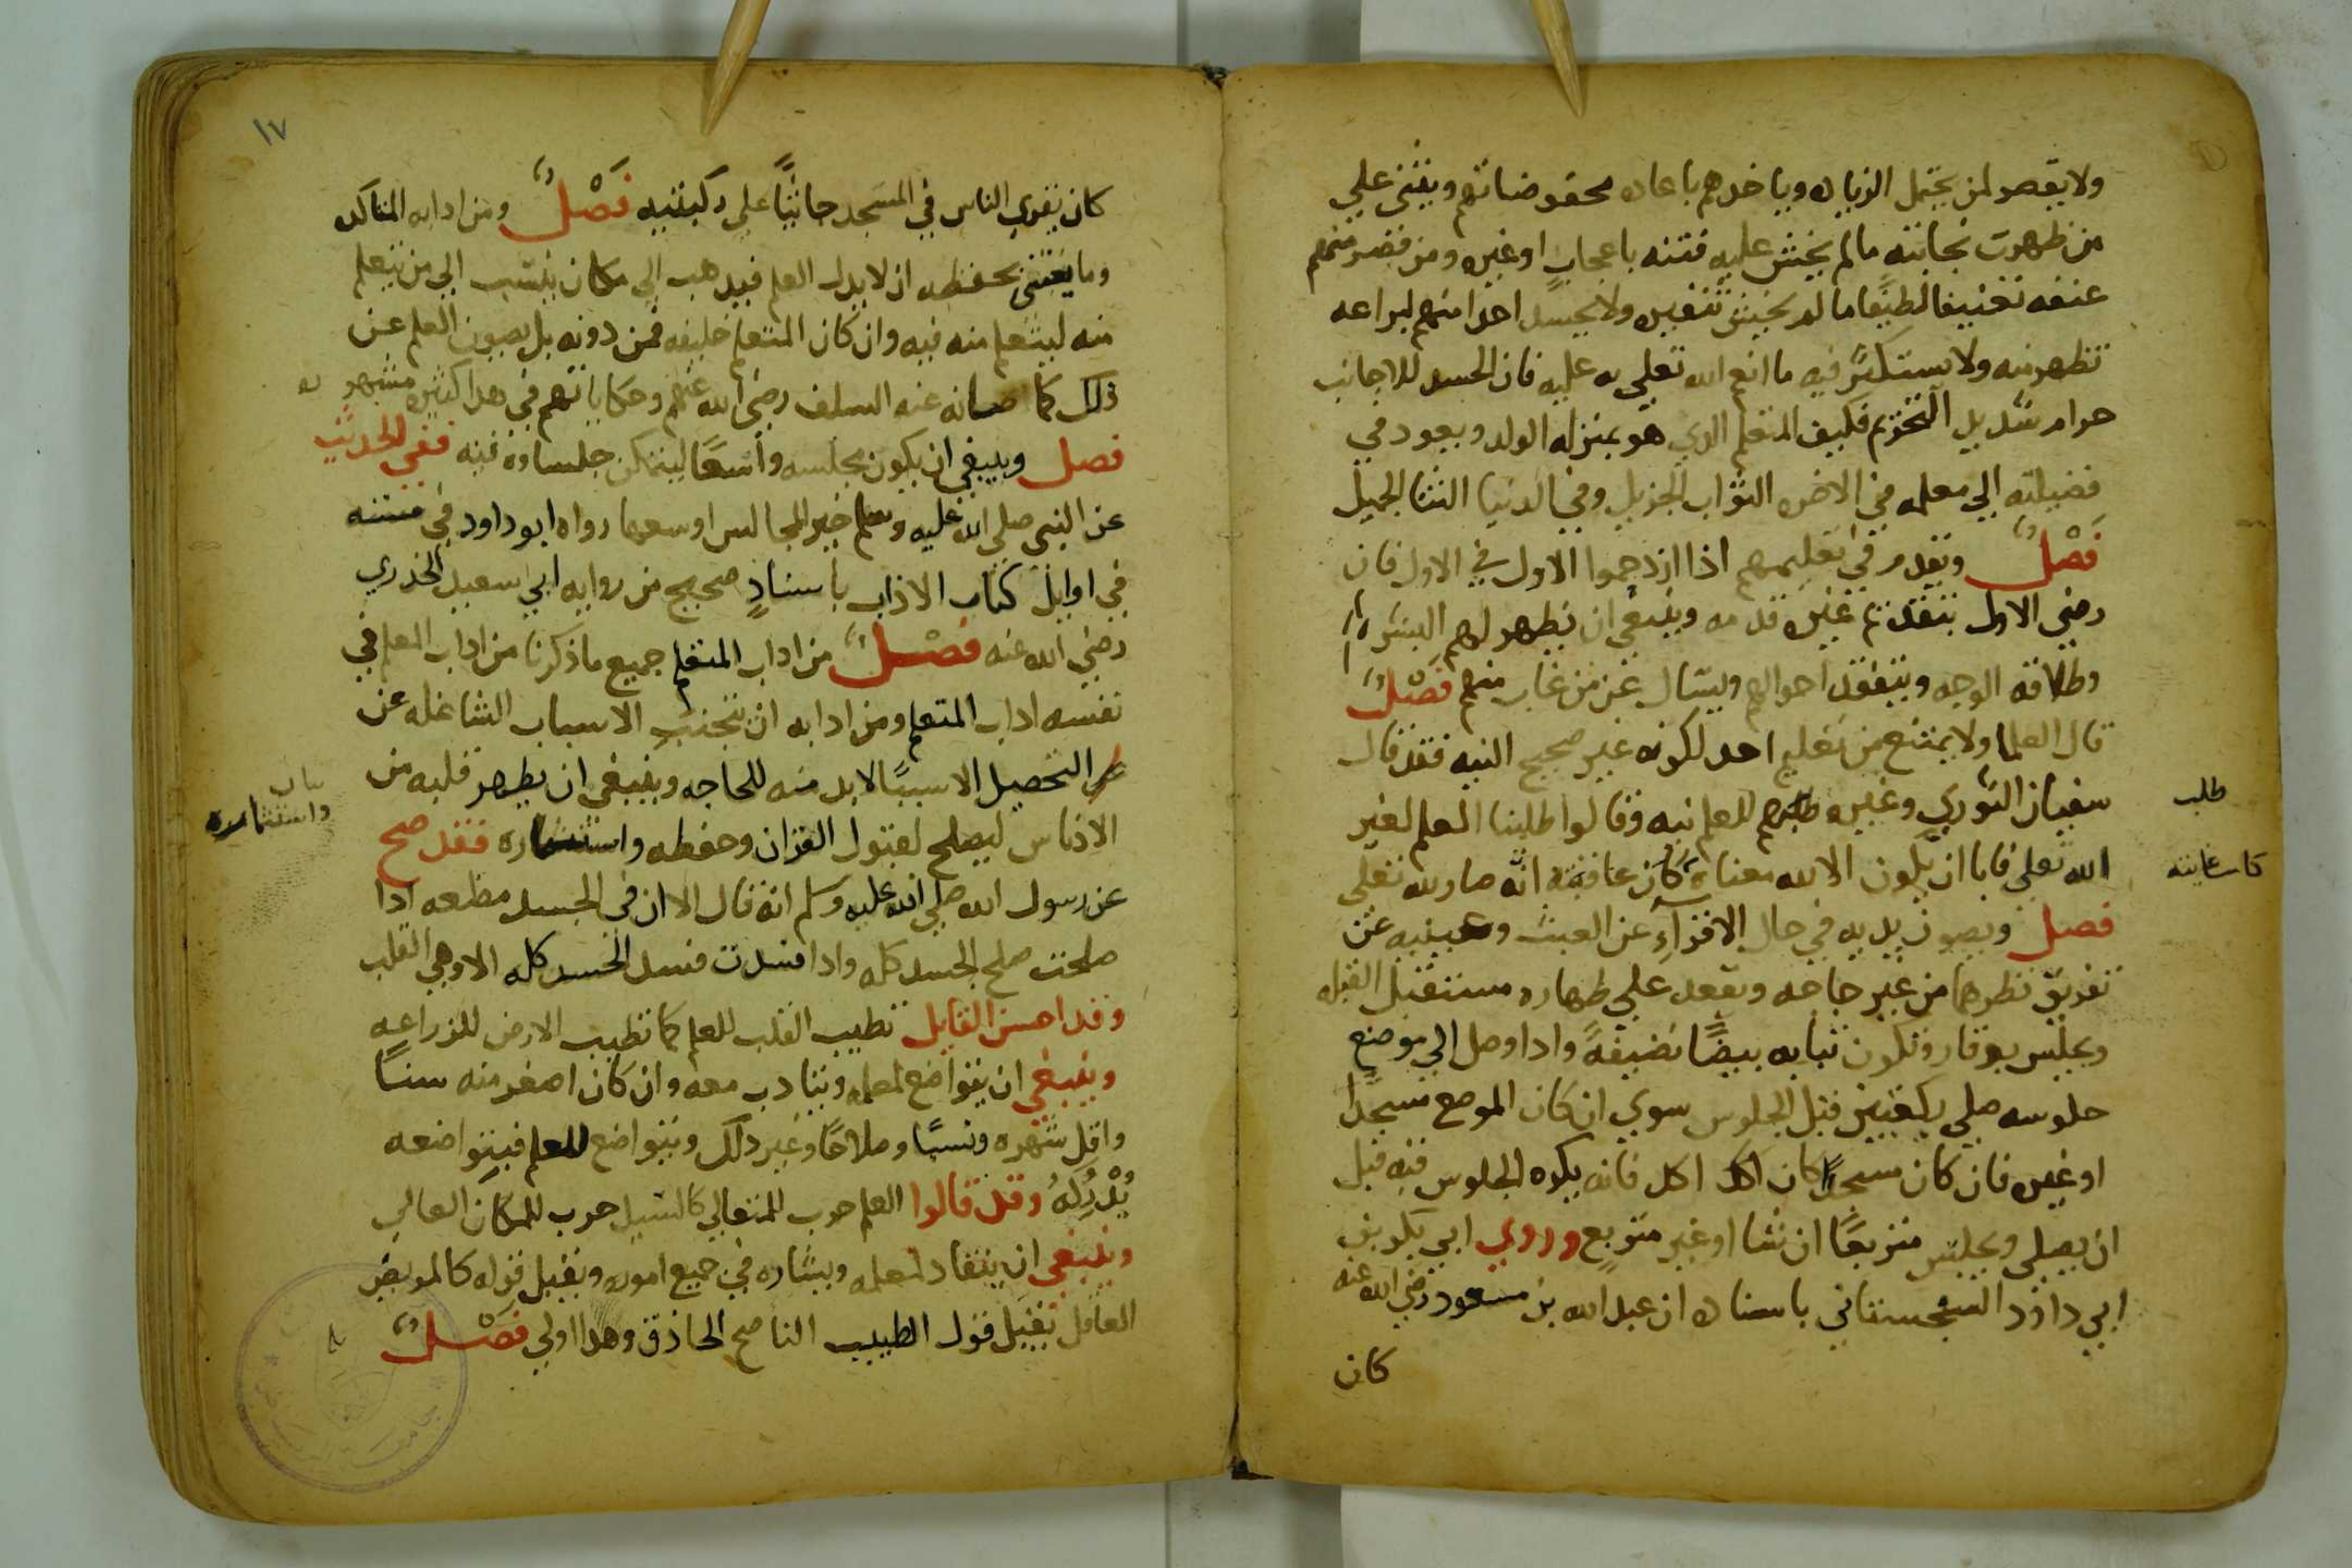 ولا يقصر لمن يحتمل الزياده وياخدهم باعاده محفوضاتهم ويثني علي
من ظهرت نجابته مالم يخش عليه فتنه باعجابٍ او غيره ومن قصر منهم
عنفه تعنيفا لطيفًا ما لم يخش تنفيره ولا يحسد احدا منهم لبراعه
تظهر منه ولا يستكثر فيه ما انعم الله تعلي به عليه فان الحسد للاجانب
حرام شديد التحريم فكيف المتعلم الدي هو بمنزله الولد ويعود من
فضيلته الي معلمه في الاخره الثواب الجزيل وفي الدنيا الثنا الجميل
فَصْلٌ ويقدم في تعليمهم اذا ازدحموا الاول في الاول فان
رضي الاول بتقديم غيره قدمه وينبغي ان يظهر لهم البشر
وطلاقه الوجه ويتفقد احوالهم ويسال عن من غاب منهم فَصْلٌ
قال العلما ولا يمتنع من تعليم احد لكونه غير صحيح النيه فقد قال
سفيان الثوري وغيره طلبهم للعلم نيه وقالوا طلبنا العلم لغير
طلب
الله تعلي فابا ان يكون الا لله معناه كان عاقبته انه صار لله تعلي
كانت غايته
فصل ويصون يديه في حال الاقرآءِ عن العبث وعينيه عن
تفريق نظرهما من غير حاجه ويقعد علي طهاره مستقبل القبله
ويجلس بوقار وتكون ثيابه بيضًا نضيفةً وادا وصل الي موضع
جلوسه صلي ركعتين قبل الجلوس سوي ان كان الموضع مسجدًا
او غيره فان كان مسجدًا كان اكد اكد فانه يكره الجلوس فيه قبل
ان يصلي ويجلس متربعًا ان شا او غير متربع وروي ابي بكر بن
ابي داوْد السجستاني باسناده ان عبد الله بن مسعود رضي الله عنه
كان
١٧
كان يقري الناس في المسجد جاثيًا علي ركبتيه فَصْلٌ ومن ادابه المتاكده
وما يعتني بحفظه ان لا يدل العلم فيدهب الي مكان ينسب الي من يتعلم
منه ليتعلم منه فيه وان كان المتعلم خليفه فمن دونه بل يصون العلم عن
ذلك كما صانه عنه السلف رضي الله عنهم وحكاياتهم في هدا كثيره مشهوره
فصل وينبغي ان يكون مجلسه واسعًا ليتمكن جلساوه فيه ففي الحديث
عن النبي صلي الله عليه وسلم خير المجالس اوسعها رواه ابو داود في سننه
في اوايل كتاب الاداب باسنادٍ صحيح من روايه ابي سعيد الخدري
رضي الله عنه فَصْلٌ من اداب المتعلم جميع ماذكرنا من اداب المعلم في
نفسه اداب المتعلم ومن ادابه ان يتجنب الاسباب الشاغله عن
التحصيل الا سببًا لابد منه للحاجه وينبغي ان يطهر قلبه من
الادناس ليصلح لقبول القران وحفظه واستثماره فقد صح
واستثماره
عن رسول الله صلي الله عليه وسلم انه قال الا ان في الجسد مظعه ادا
صلحت صلح الجسد كله وادا فسدت فسد الجسد كله الا وهي القلب
وقد احسن القايل تطيب القلب للعلم كما تطيب الارض للزراعه
وينبغي ان يتواضع لمعلمه ويتادب معه وان كان اصغر منه سنًا
واقل شهره ونسبًا وصلاحًا وغير دلك ويتواضع للعلم فبتواضعه
يُدْرِكهُ وقد قالوا العلم حرب للمتعالي كالسيل حرب للمكان العالي
وينبغي ان ينقاد لمعلمه ويشاره في جميع اموره ويقبل قوله كالمريض
العاقل يقبل قول الطبيب الناصح الحاذق وهدا اولي فَصْلٌ